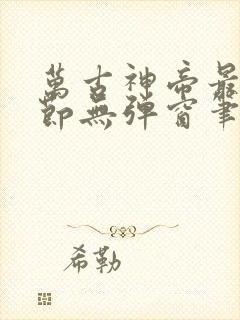 萬古神帝最
節無彈窗筆
希勒